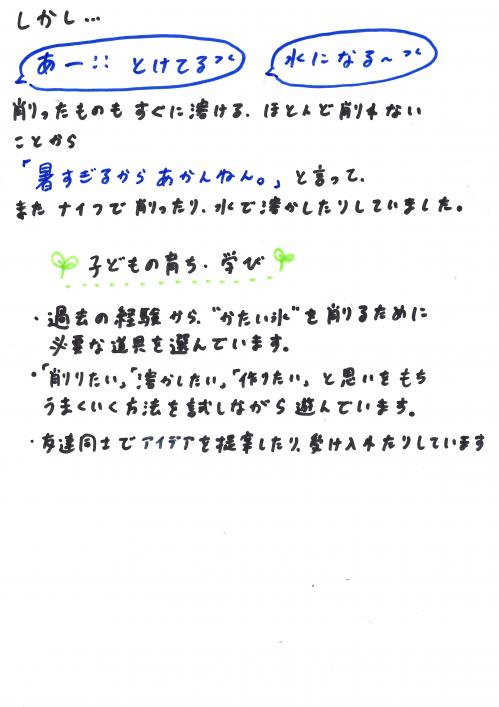 しかし…
あー!! とけてる〜
水になる〜〜
削ったものも すぐに溶ける、ほとんど削れない
ことから
「暑すぎるから あかんねん。」と言って、
また ナイフで 削ったり、水で溶かしたりしていました。
子どもの育ち・学び
・過去の経験から、"かたい氷"を削るために
必要な道具を選んでいます。
・「削りたい」「溶かしたい」「作りたい」と思いをもち
うまくいく方法を試しながら遊んでいます。
・友達同士でアイデアを提案したり、受け入れたりしています